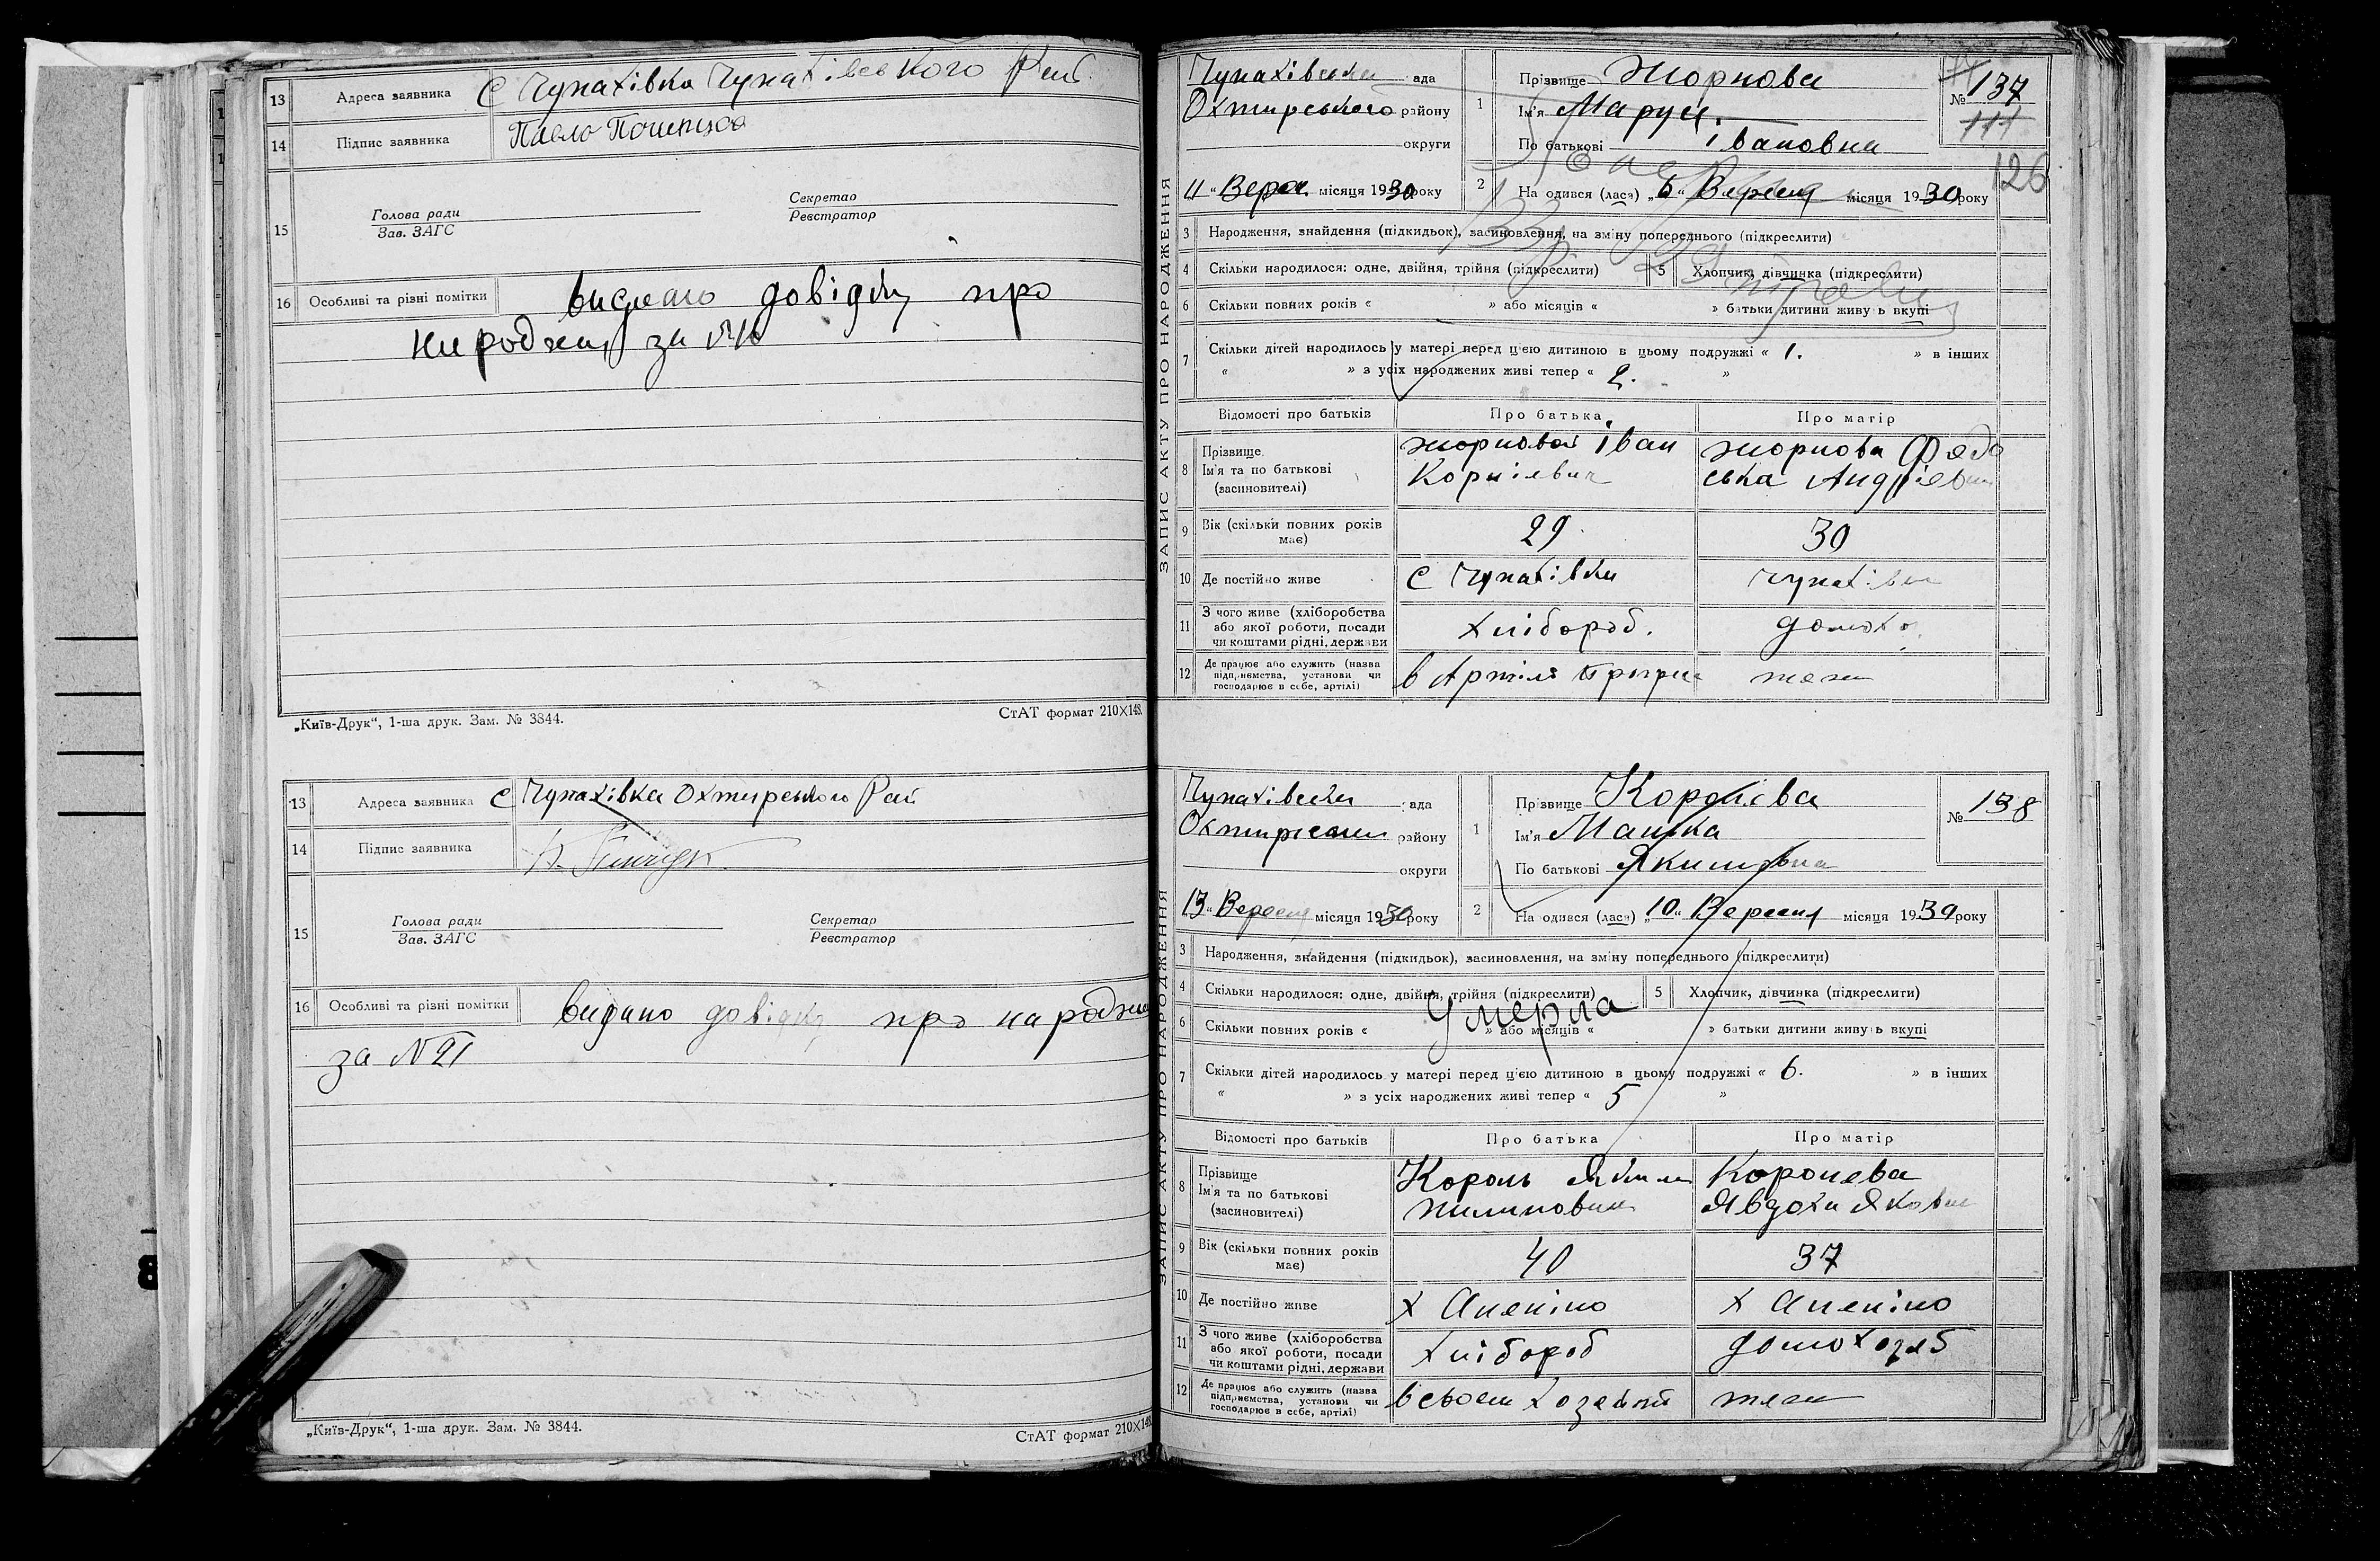 13 Адреса заявника С Чупахівка Чупахівського Рай.
14 Підпис заявника Павло
15 Голова ради
Зав. ЗАГС
Секретар
Реєстратор
16 Особливі та різні помітки довідку про
народжен за №
„Київ-Друк“, 1-ша друк. Зам. № 3844.
СтАТ формат 210X148.
13 Адреса заявника С Чупахівка Охтирського Рай
14 Підпис заявника
15 Голова ради
Зав. ЗАГС
Секретар
Реєстратор
16 Особливі та різні помітки видано довідку про народжен
за № 21
„Київ-Друк“, 1-ша друк. Зам. № 3844.
СтАТ формат 210X148
ЗАПИС АКТУ ПРО НАРОДЖЕННЯ
Чупахівська рада
Охтирського району
округи
11 „ Верес місяця 1930 року
1 Прізвище Жорнова
Ім'я Маруся
По батькові Івановна
№ 137
111
126
2 На одився (лася) „ 6 “ Вересня місяця 1930 року
3 Народження, знайдення (підкидьок), засиновлення, на зміну попереднього (підкреслити)
4 Скільки народилося: одне, двійня, трійня (підкреслити)
5 Хлопчик, дівчинка (підкреслити)
6 Скільки повних років « » або місяців « » батьки дитини живуть вкупі
7 Скільки дітей народилось у матері перед цією дитиною в цьому подружжі « 1. » в інших
« » з усіх народжених живі тепер « 2. »
Відомості про батьків Про батька Про матір
8 Прізвище
Ім'я та по батькові
(засиновителі)
Жорновой Іван
Корнієвич
Жорнова Федо
ська Андріевна
9 Вік (скільки повних років має) 29 30
10 Де постійно живе С Чупахівка Чупахівка
11 З чого живе (хліборобства
або якої роботи, посади
чи коштами рідні, держави
Хлібороб. домохо
12 Де працює або служить (назва
підприємства, установи чи
господарює в себе, артілі)
в Артілі
ЗАПИС АКТУ ПРО НАРОДЖЕННЯ
Чупахівська рада
району
округи
13 „ Вересня місяця 1930 року
1 Прізвище Королєва
Ім'я Машка
По батькові Якимовна
№ 138
2 На одився (лася) „ 10 “ Вересня місяця 1930 року
3 Народження, знайдення (підкидьок), засиновлення, на зміну попереднього (підкреслити)
4 Скільки народилося: одне, двійня, трійня (підкреслити)
5 Хлопчик, дівчинка (підкреслити)
Умерла
6 Скільки повних років « » або місяців « » батьки дитини живуть вкупі
7 Скільки дітей народилось у матері перед цією дитиною в цьому подружжі « 6. » в інших
« » з усіх народжених живі тепер « 5 »
Відомості про батьків Про батька Про матір
8 Прізвище
Ім'я та по батькові
(засиновителі)
Король Яким
Пилипович
Королева
Явдоха Яковна
9 Вік (скільки повних років має) 40 37
10 Де постійно живе
11 З чого живе (хліборобства
або якої роботи, посади
чи коштами рідні, держави
Хлібороб
12 Де працює або служить (назва
підприємства, установи чи
господарює в себе, артілі)